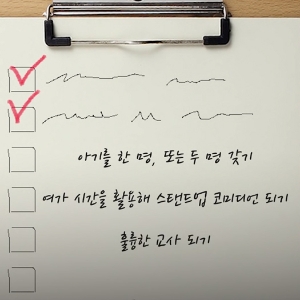 아기를 한 명, 또는 두 명 갖기
여가 시간을 활용해 스탠드업 코미디언 되기
훌륭한 교사 되기